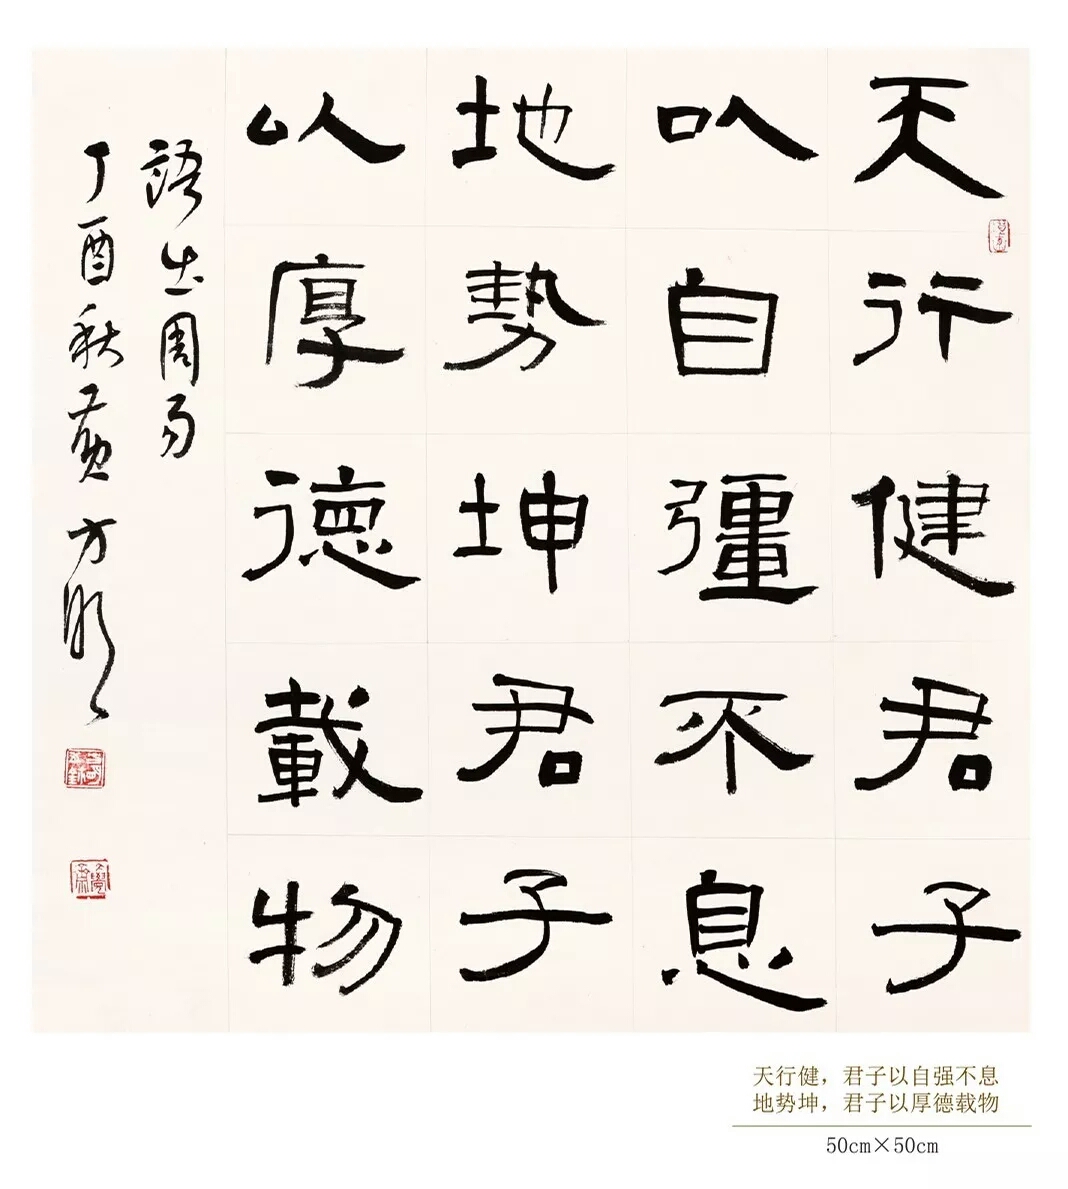 天行健君子
以自彊不息
地勢坤君子
以厚德載物
語出周易
丁酉秋黄方
天行健，君子以自强不息
地势坤，君子以厚德载物
50cm×50cm